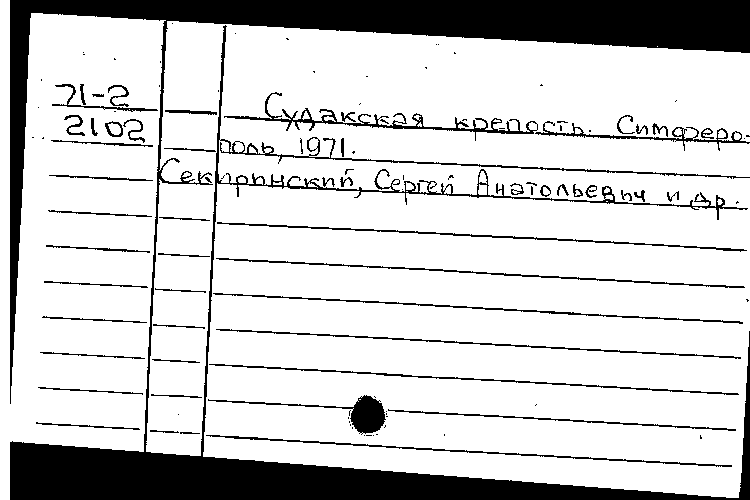 71-2
2102
Судакская крепость. Симферо-
поль, 1971.
Секиринский, Сергей Анатольевич и др.